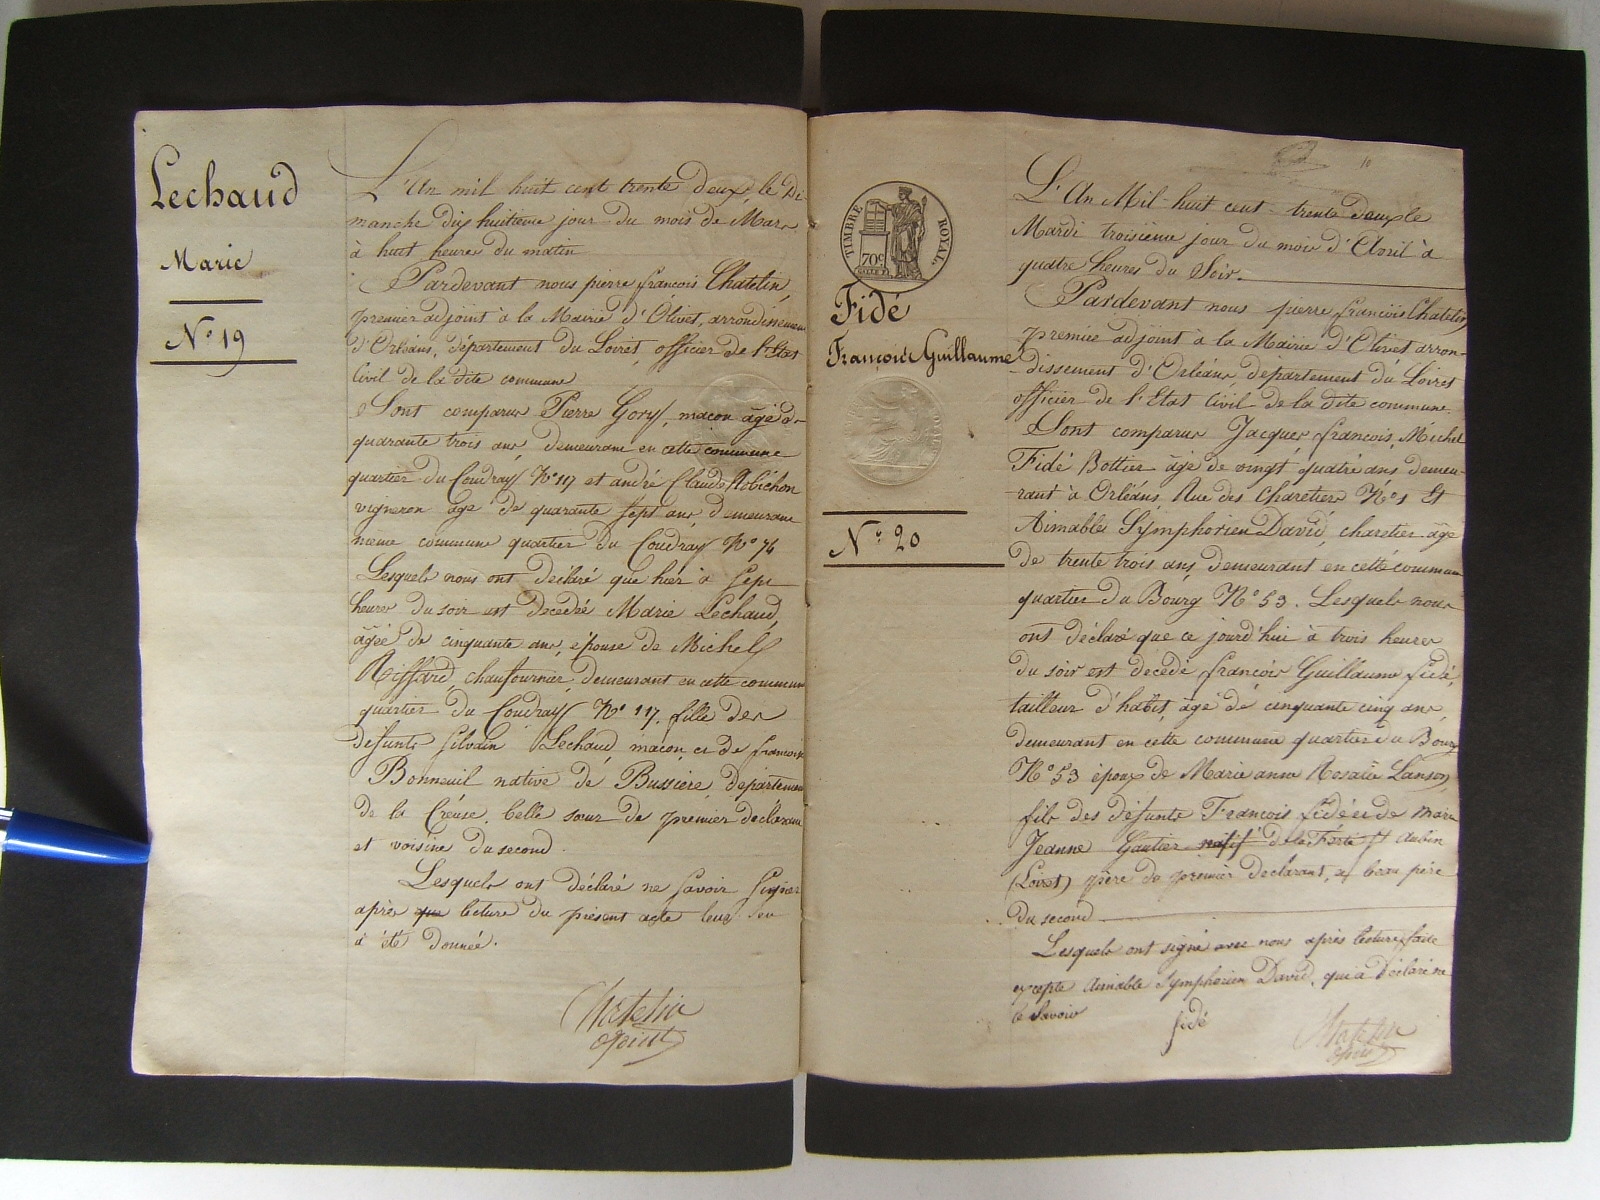 Lechaud
Marie
N° 19
L'An mil huit cent trente deux, le Di-
manche dix huitieme jour du mois de Mars
à huit heures du matin
Pardevant nous pierre françois Chatelin,
premier adjoint à la Mairie d'Olivet, arrondissement
d'Orléans, département du Loiret, officier de l'Etat
Civil de la dite commune
Sont comparus Pierre Gory, maçon agé de
quarante trois ans demeurant en cette commune
quartier du Coudray N° 117 et andré Claude Robichon
vigneron agé de quarante sept ans, demeurant
même commune quartier du Coudray N° 76
Lesquels nous ont déclaré que hier à sept
heures du soir est décédée Marie Lechaud,
âgée de cinquante ans, épouse de Michel
Riffard, chaufournier, demeurant en cette commune
quartier du Coudray N° 117. fille des
défunts Silvain Lechaud, maçon et de françoise
Bonneuil native de Bussiere, département
de la Creuse. belle sœur de premier déclarant
et voisine du second.
Lesquels ont déclaré ne savoir signer
après que lecture du présent acte leur
a été donnée.
Chatelin
adjoint
10
TIMBRE ROYAL
70c
Fidé
François Guillaume
N° 20
L'An Mil huit cent trente deux le
Mardi troisième jour du mois d'Avril à
quatre heures du Soir.
Pardevant nous pierre françois Chatelin
premier adjoint à la Mairie d'Olivet arron-
dissement d'Orléans, département du Loiret
officier de l'Etat Civil de la dite commune.
Sont comparus Jacques françois, Michel
Fidé Bottier âgé de vingt quatre ans demeu-
rant à Orléans Rue des Charetiers N° 1 Et
Aimable Symphorien David, charetier agé
de trente trois ans, demeurant en cette commune
quartier du Bourg N° 53. Lesquels nous
ont déclaré que ce jourd'hui à trois heures
du soir est décédé françois Guillaume fidé,
tailleur d'habit, âgé de cinquante cinq ans,
demeurant en cette commune quartier du Bourg
N° 53 époux de Marie anne Rosalie Lanson,
fils des défunts François fidé et de Marie
Jeanne Gautier natif de la Ferté St Aubin
(Loiret) père de premier déclarant, et beau père
du second
Lesquels ont signé avec nous après lecture faite
excepté Aimable Symphorien David, qui a déclaré ne
le savoir
fidé
Chatelin
adjoint